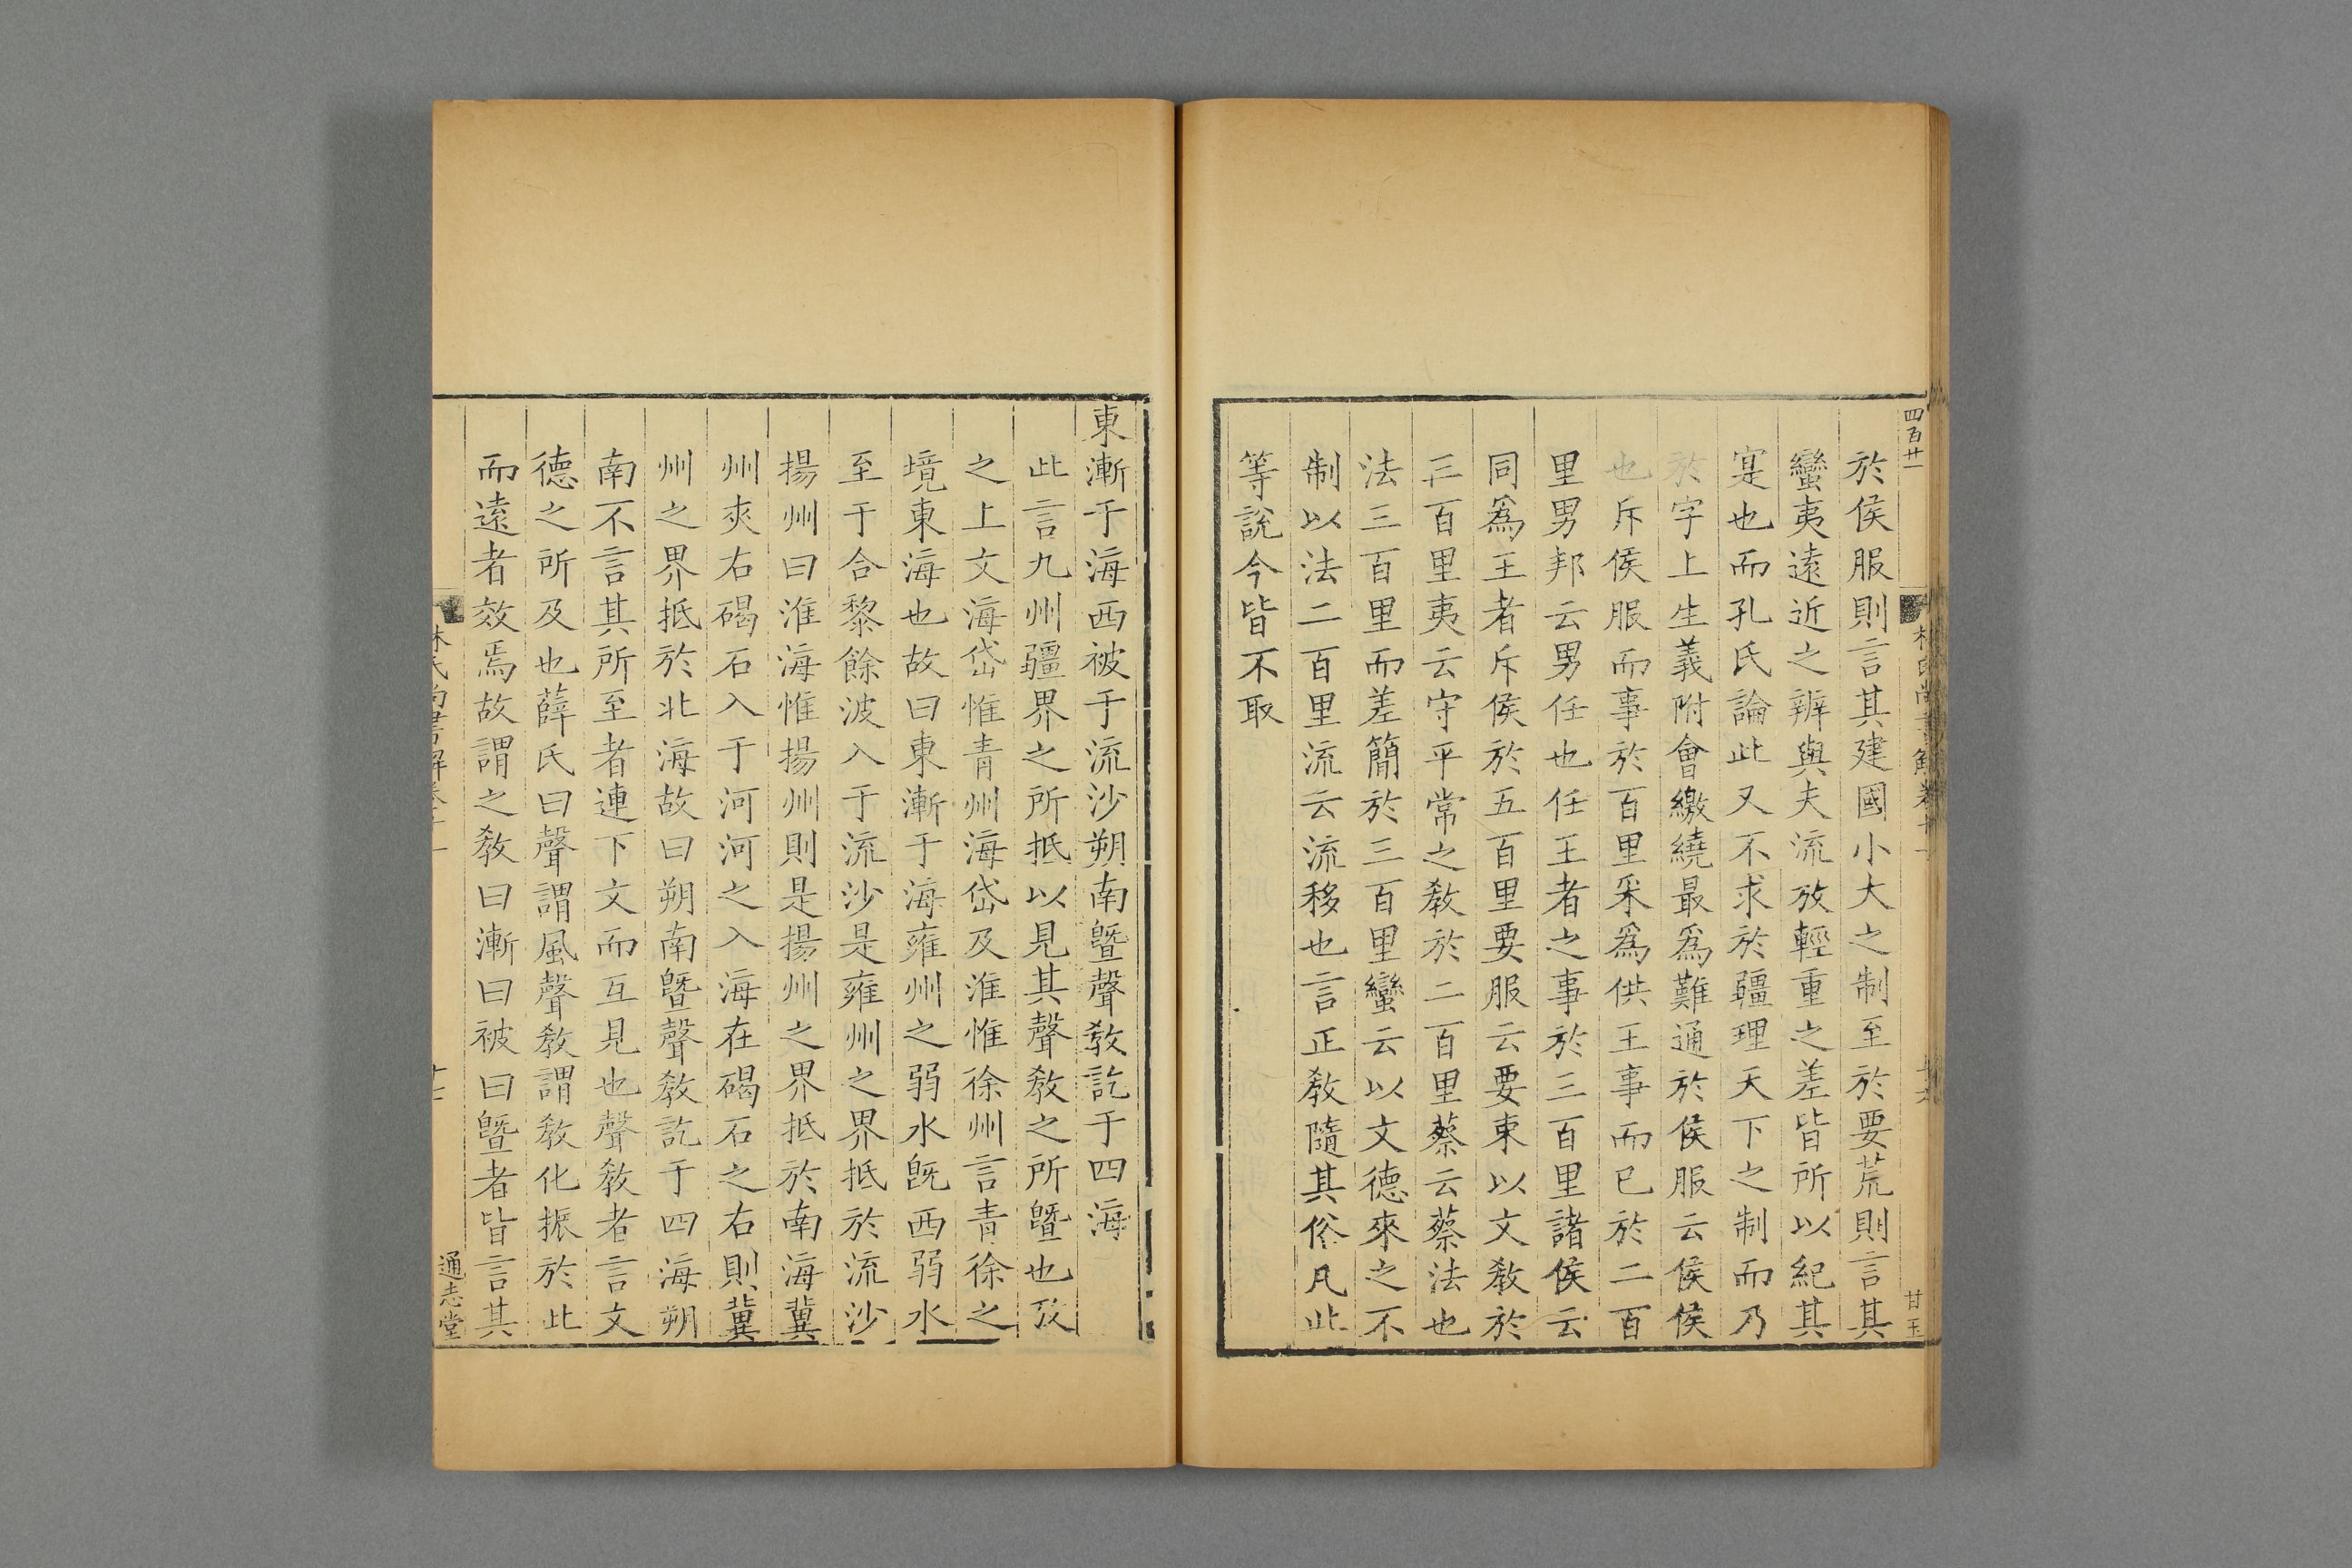 四百廿一
於侯服則言其建國小大之制至於要荒則言其
蠻夷遠近之辨與夫流放輕重之差皆所以紀其
寔也而孔氏論此又不求於疆理天下之制而乃
於字上生義附會繳繞最爲難通於侯服云侯侯
也斥侯服而事於百里采爲供王事而已於二百
里男邦云男任也任王者之事於三百里諸侯云
同爲王者斥侯於五百里要服云要束以文敎於
三百里夷云守平常之敎於二百里蔡云蔡法也
法三百里而差簡於三百里蠻云以文德來之不
制以法二百里流云流移也言正敎隨其俗凡此
等說今皆不取
甘玉
東漸于海西被于流沙朔南曁聲敎訖于四海
此言九州疆界之所抵以見其聲敎之所曁也攷
之上文海岱惟青州海岱及淮惟徐州言青徐之
境東海也故曰東漸于海雍州之弱水旣西弱水
至于合黎餘波入于流沙是雍州之界抵於流沙
揚州曰淮海惟揚州則是揚州之界抵於南海冀
州夾右碣石入于河河之入海在碣石之右則冀
州之界抵於北海故曰朔南曁聲敎訖于四海朔
南不言其所至者連下文而互見也聲敎者言文
德之所及也薛氏曰聲謂風聲敎謂敎化振於此
而遠者效焉故謂之敎曰漸曰被曰曁者皆言其
林氏尚書解卷十一
通志堂